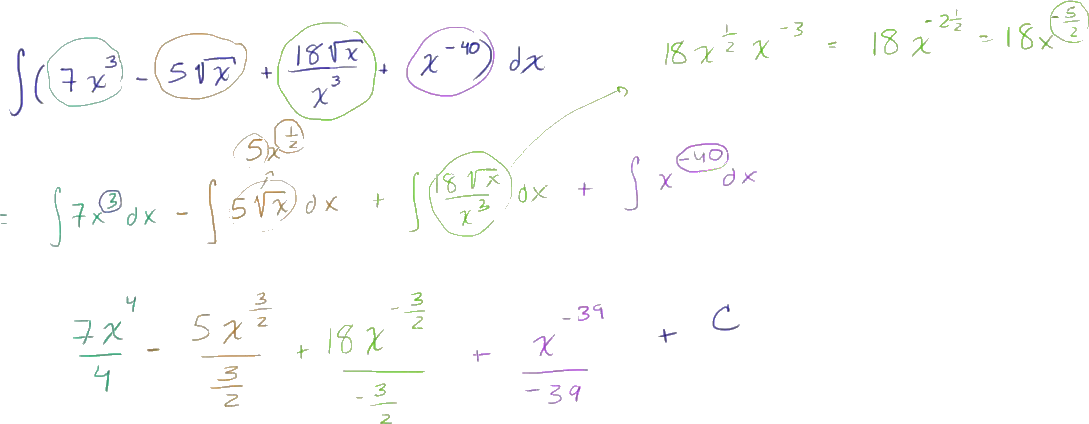 ∫(7x³ - 5√x + 18√x/x³ + x⁻⁴⁰) dx
18 x^(1/2) x⁻³ = 18 x^(-2 1/2) = 18x^(-5/2)
5x^(1/2)
= ∫7x³ dx - ∫5√x dx + ∫18√x/x³ dx + ∫x⁻⁴⁰ dx
7x⁴/4 - 5x^(3/2)/(3/2) + 18x^(-3/2)/(-3/2) + x⁻³⁹/-39 + C